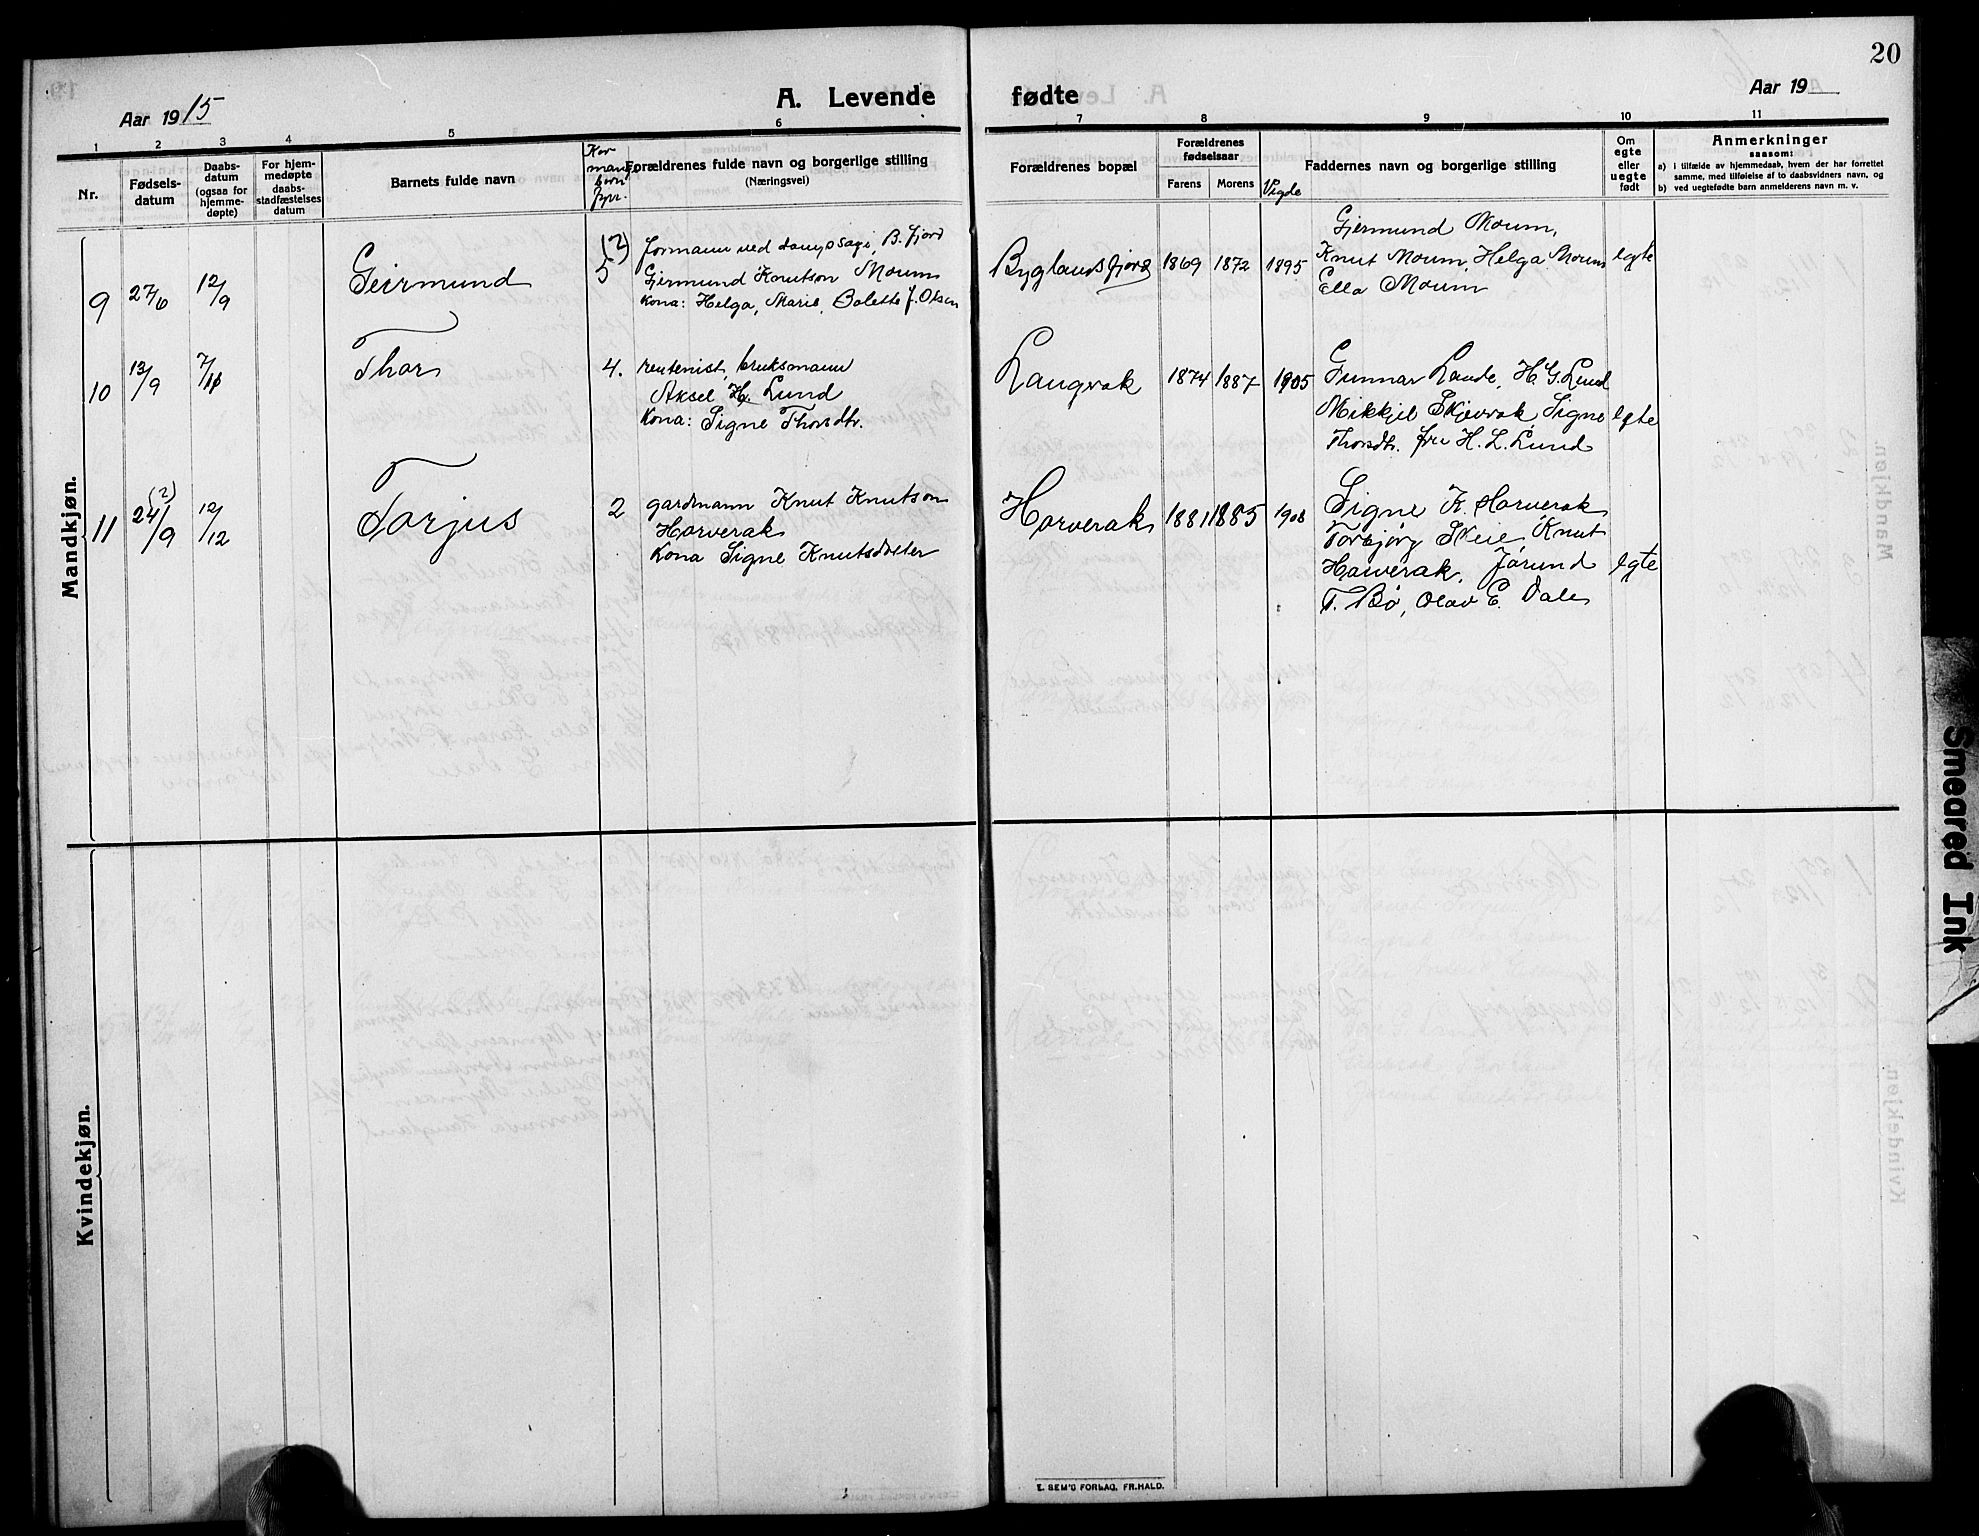 20
Aar 1915
A. Levende
fødte
Aar 19
1 2 3 4 5 6
7 8 9 10 11
Nr.
Fødsels-
datum
Daabs-
datum
(ogsaa for
hjemme-
døpte)
For hjem-
medøpte
daabs-
stadfæstelses
datum
Barnets fulde navn
Kor
mange
born
fyrr.
Forældrenes fulde navn og borgerlige stilling
(Næringsvei)
Forældrenes bopæl
Forældrenes
fødselsaar
Farens
Morens
Vigde
Faddernes navn og borgerlige stilling
Om
egte
eller
uegte
født
Anmerkninger
saasom:
a) i tilfælde av hjemmedaab, hvem der har forrettet
samme, med tilføielse af to daabsvidners navn, og
b) ved uegtefødte barn anmelderens navn m. v.
Mandkjøn.
9 27/6 12/9 Geirmund (2) 5
formann ved dampsagi, B. fjord
Gjermund Knutson Moum
kona: Helga, Marie, Bolette J. Olsen
Byglandsfjord 1869 1872 1895
Gjermund Moum,
Knut Moum, Helga Moum
Ella Moum
egte
10 13/9 7/11 Thor 4.
rentenist, bruksmann
Aksel H. Lund
Kona: Signe Thorsdtr.
Langvak 1874 1887 1905
Gunnar Lande, H. G. Lund
Mikkjel Skjevrak Signe
Thorsdtr. fru H. L. Lund
egte
11 (2) 24/9 12/12 Torjus 2
gardmann Knut Knutson
Horverak
Kona Signe Knutsdotter
Horverak 1881 1885 1908
Signe K. Horverak
Torbjørg Skeie Knut
Horverak, Jørund
T. Bø, Olav E. Dale
egte
Kvindekjøn.
E. SEM'S FORLAG, FR.HALD.
Smeared Ink